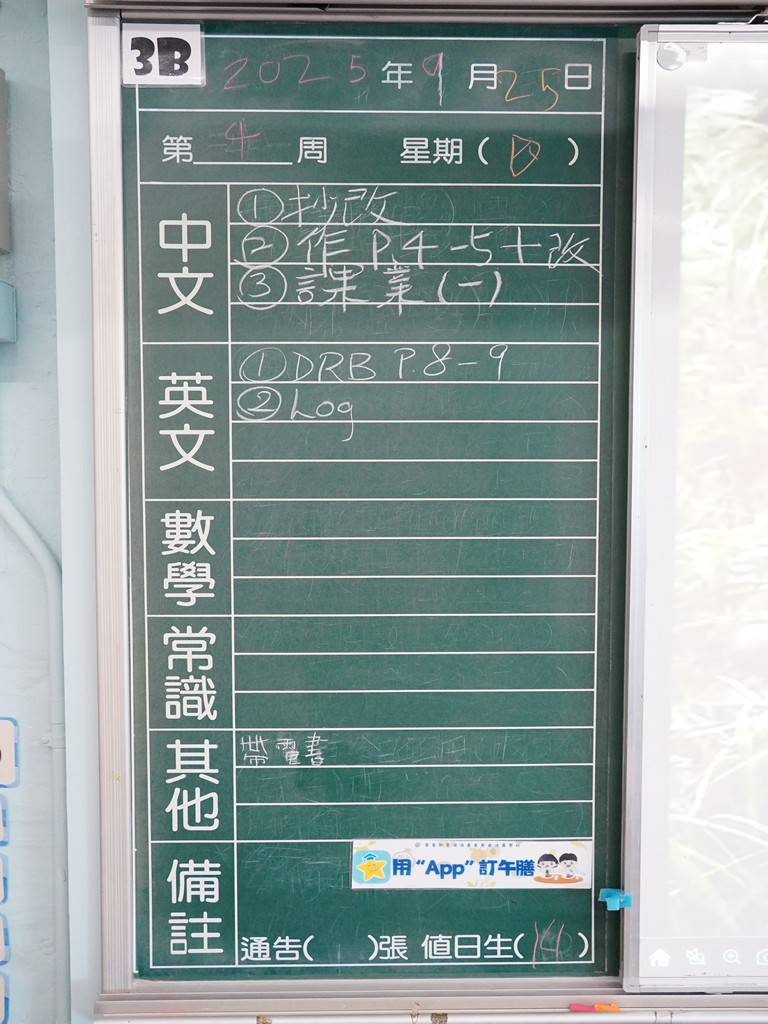 3B
2025年9月25日
第4周 星期(四)
中文
①抄改
②作 P.4-5+改
③課業(一)
英文
①DRB P.8-9
②Log
數學
常識
其他
帶電書
備註
用"App"訂午膳
通告( )張 值日生(14)